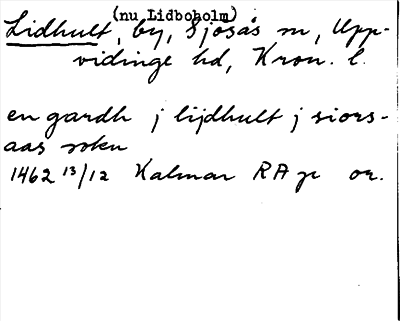 (nu Lidboholm)
Lidhult, by, Sjösås sn, Upp-
vidinge hd, Kron. l.
en gardh j lijdhult j siors-
aas sokn
1462 13/12 Kalmar RA p or.